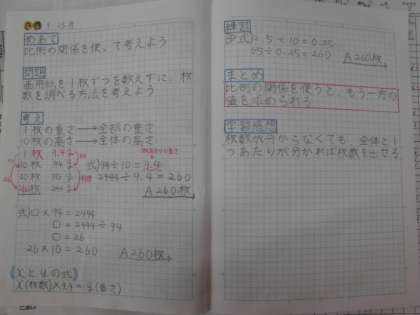 めあて
比例の関係を使って考えよう
問題
画用紙を1枚ずつを数えずに、枚
数を調べる方法を考えよう
考え
1枚の重さ→全部の重さ
10枚の高さ→全体の高さ
1枚 9.4
10枚 94
式 94÷10=9.4
2444÷9.4=260
260枚
A 260枚
式 □×94=2444
□=2444÷94
□=26
26×10=260
A 260枚
xとyの式
x(枚数)×9.4=y(重さ)
練習
式 2.5÷10=0.25
65÷0.25=260
A 260枚
まとめ
比例の関係を使うと、もう一方の
値を求められる
学習感想
枚数が分からなくても、全体と1
つあたりが分かれば枚数を出せる